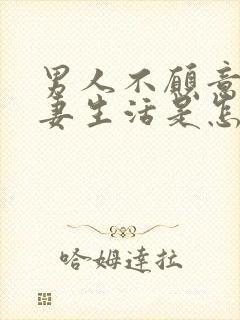 男人不愿意
妻生活是怎
哈姆達拉